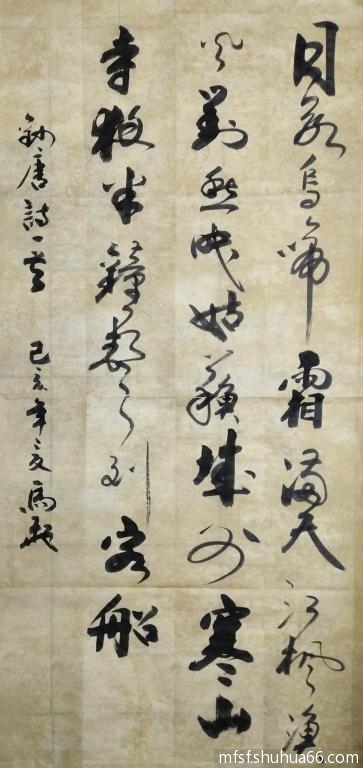 月落烏啼霜滿天江楓漁
火對愁眠姑蘇城外寒山
寺夜半鐘聲到客船
唐詩一首 己亥年之夏
mfsfshuhua66.com